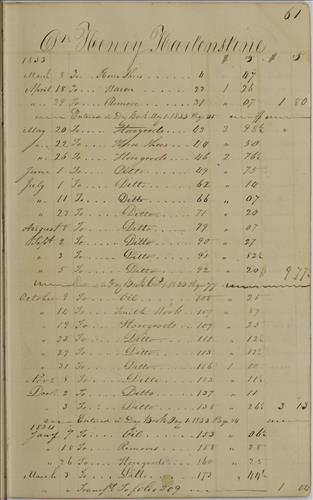 61
Dr. Henry Hartenstine
1833 $ $
March 8 To Horse Shoes 4 " 47
April 18 To Bacon 22 1 26
" 29 To Remove 31 " 07 1 80
Entered in Day Book May 1 1833 Page
May 20 To Storegoods 43 3 98½
" 22 To Horse Shoes 44 " 50
" 26 To Storegoods 46 2 76½
June 1 To Ditto 49 " 75
July 1 To Ditto 62 " 14
" 11 To Ditto 66 " 07
" 23 To Ditto 71 " 20
August 8 To Ditto 79 " 07
Sept. 2 To Ditto 90 " 27
" 3 To Ditto 91 " 82½
" 5 To Ditto 92 " 20 9 77½
Day Book 1833 Page 77
October 9 To Oil 108 " 25
" 14 To Smith Work 107 " 87
" 19 To Storegoods 109 " 25
" 23 To Ditto 111 " 12½
" 29 To Ditto 113 " 82½
" 31 To Ditto 106 1 00
Nov. 8 To Ditto 122 " 11½
Dec. 2 To Ditto 137 " 11
" 3 To Ditto 138 " 26½ 3 13
Entered in Day Book 1833 Page 24
1834
Jany. 7 To Oil 153 " 06½
" 18 To Removes 158 " 25
" 26 To Storegoods 160 " 25
March 3 To Ditto 175 " 44½
" Transfd. To folio 309 1 01